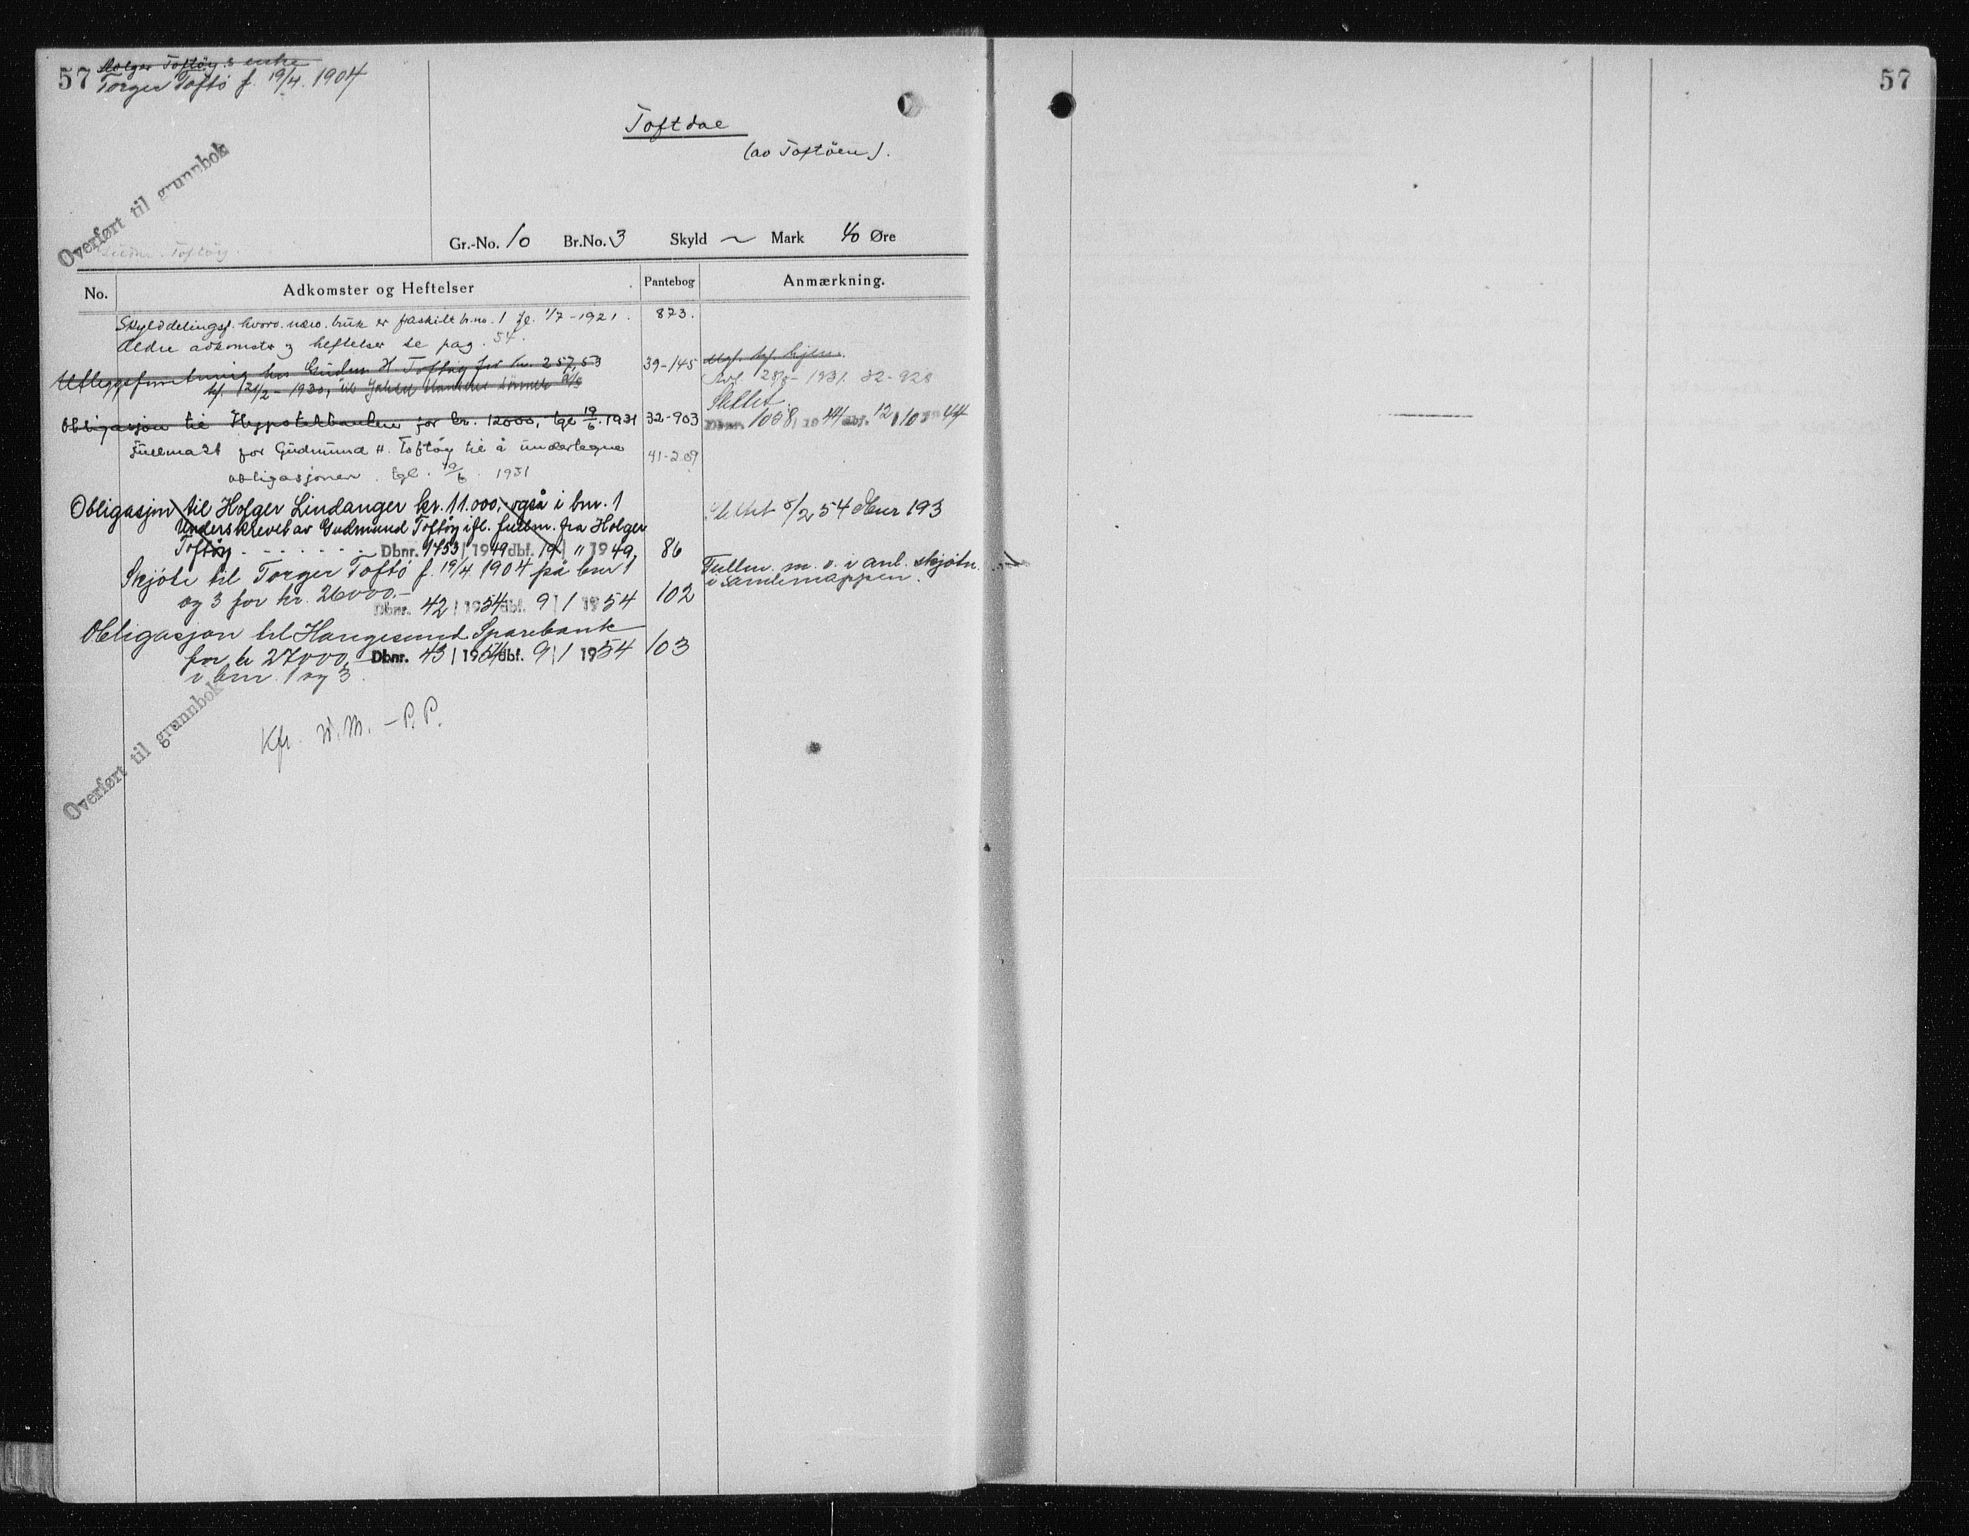 57
57
Holger Toftøy's enke
Torger Toftø f. 19/4. 1904
Toftdal
(av Toftöen).
Overført til grunnbok
Toftöy.
Gr.-No. 10 Br.No. 3 Skyld ~ Mark 40 Øre
No. Adkomster og Heftelser Pantebog Anmærkning.
Skylddelingsf. hvorv. nærv. bruk er fraskilt br.no. 1 tgl. 1/7-1921. 873.
Ældre adkomster og heftelser se pag. 54.
Utleggsforretning hos Gudm. H. Toftøy for kr. 257,53 39-145
tgl. 12/2-1930, til
28/5-1931. 32-928
Obligasjon til Hypotekbanken for kr. 12000, tgl 19/6.1931 32-903 Slettet Dbnr. 1058 | 1944 dbf. 12 | 10 1944
Fullmakt for Gudmund H. Toftøy til å undertegne 41-209
obligasjonen. tgl. 19/6. 1931
Obligasjon til Holger Lindanger kr. 11.000,- også i bnr. 1 Slettet 8/2 54 Dbnr 193
Underskrevet av Gudmund Toftøy ifl. fullm. fra Holger
Toftøy - - - - - - Dbnr. 1753 | 1949 dbf. 19 | 11 1949. 86
Skjöte til Torger Toftö f. 19/4. 1904 på bnr 1 Fullm. m. v. i anl. skjötn.
i samlemappen.
og 3 for kr. 26000.- Dbnr. 42 | 1954 dbf. 9 | 1 1954 102
Obligasjon til Haugesund Sparebank
for kr 27000,- Dbnr. 43 | 1954 dbf. 9 | 1 1954 103
i bnr. 1 og 3.
Overført til grunnbok
Kfr. W.M. - P.P.